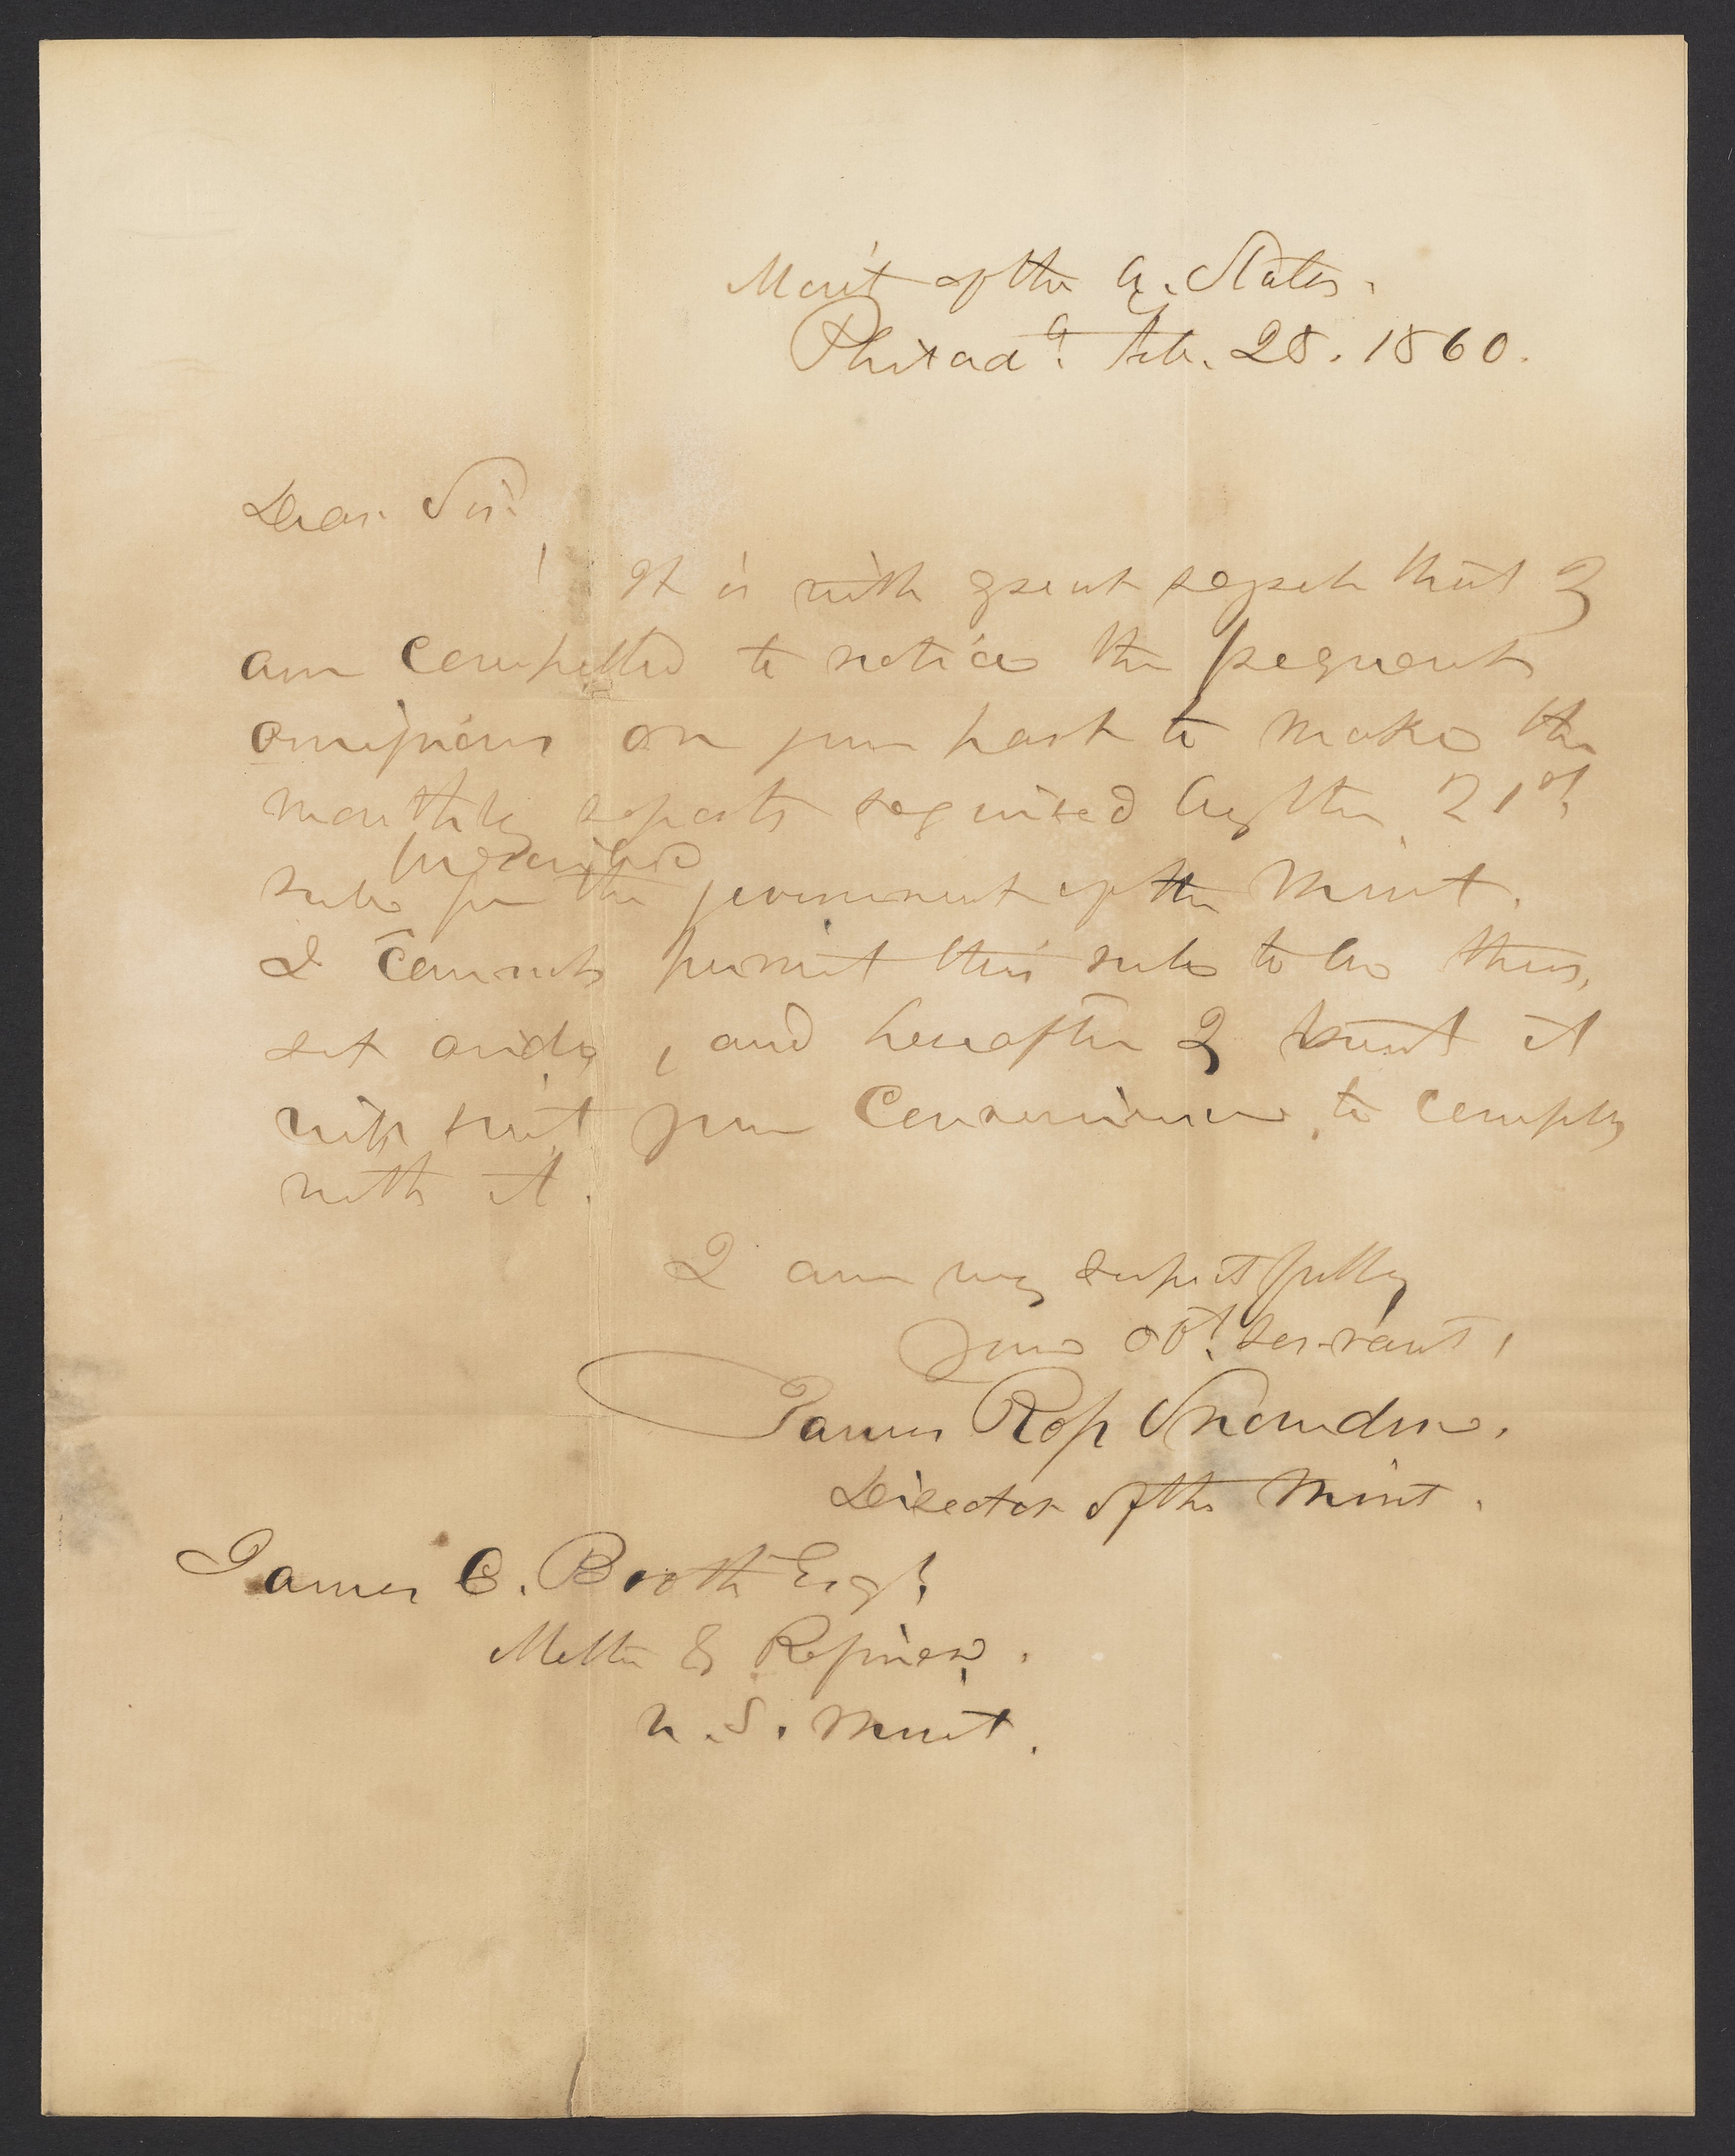 Mint of the U. States.
Philada. Feb. 28. 1860.
Dear Sir:
It is with great regret that I
am compelled to notice the frequent
omissions on your part to make the
monthly reports required by the 21st
prescribed
rule for the government of the Mint.
I cannot permit this rule to be thus
set aside, and hereafter I trust it
will suit your convenience, to comply
with it.
I am very respectfully
Your obt. servant,
James Ross Snowden.
Director of the Mint.
James C. Booth Esqr.
Melter & Refiner.
U. S. Mint.